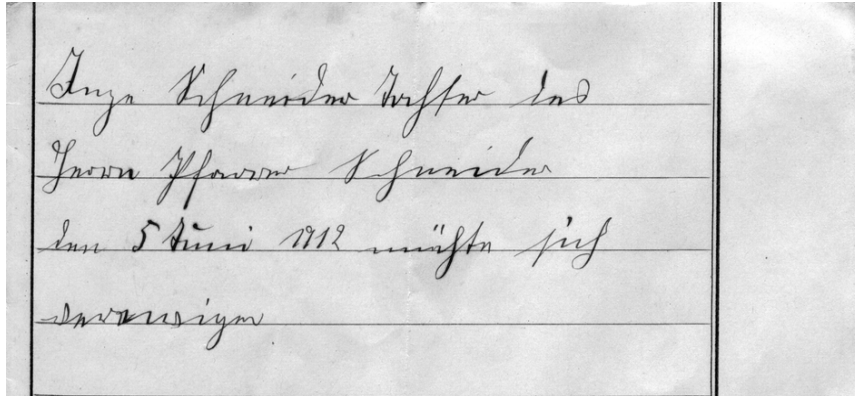 Inge Schneider Tochter des
Herrn Pfarrer Schneider
den 5 Juni 1912 möchte sich
verewigen